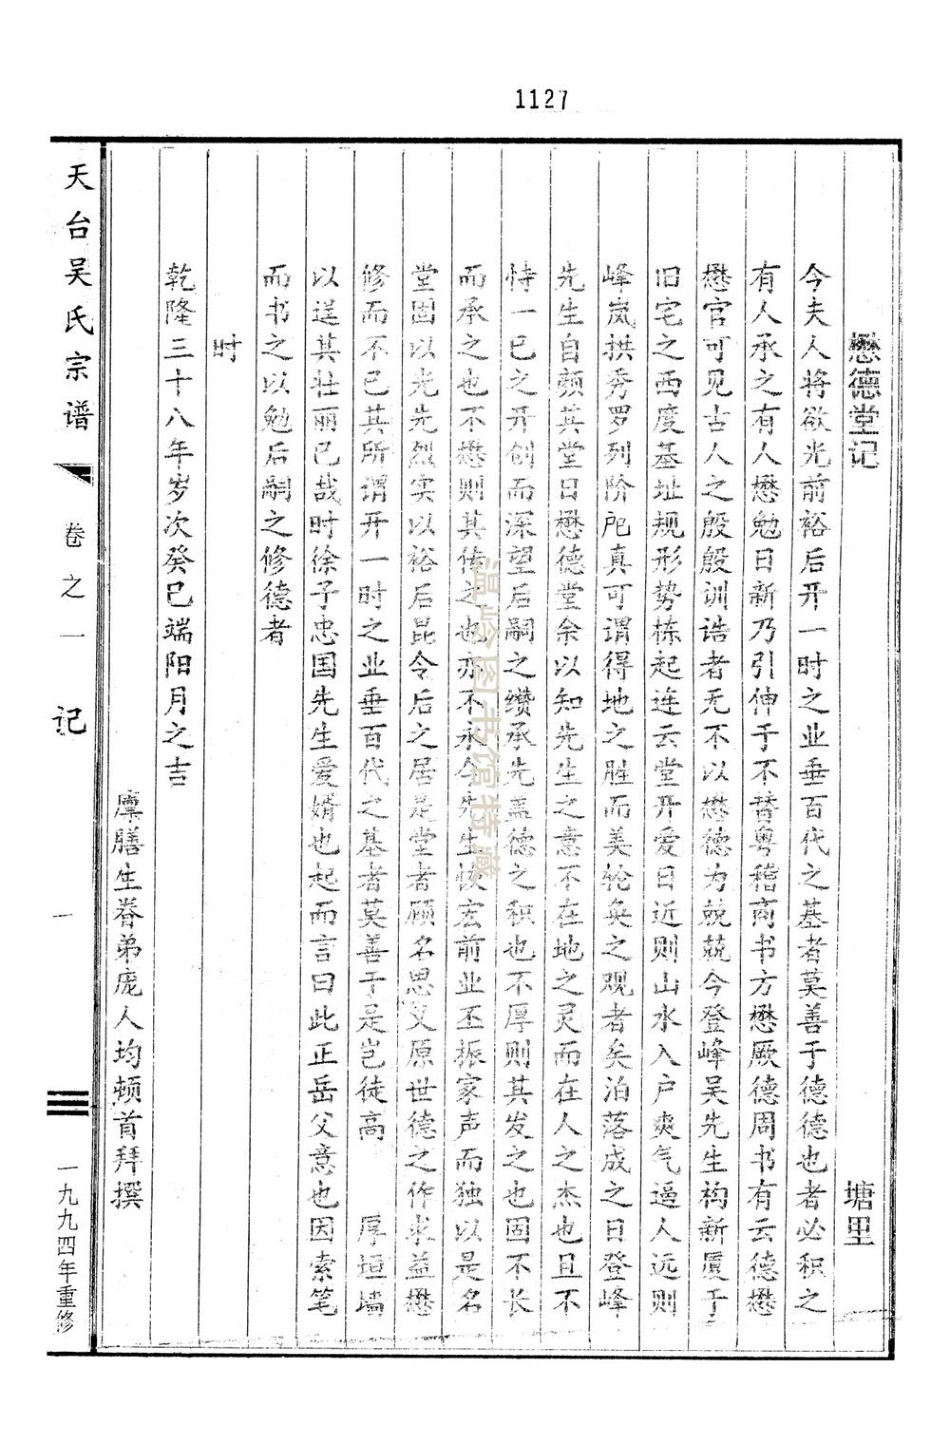 1127
懋德堂记　塘里
今夫人将欲光前裕后开一时之业垂百代之基者莫善于德德也者必积之
有人承之有人懋勉日新乃引伸于不替粤稽商书方懋厥德周书有云德懋
懋官可见古人之殷殷训诰者无不以懋德为兢兢今登峰吴先生构新厦于
旧宅之西度基址规形势栋起连云堂开爱日近则山水入户爽气逼人远则
峰岚拱秀罗列阶戺真可谓得地之胜而美轮奂之观者矣泊落成之日登峰
先生自颜其堂曰懋德堂余以知先生之意不在地之灵而在人之杰也且不
恃一已之开创而深望后嗣之缵承先盖德之积也不厚则其发之也固不长
而承之也不懋则其传之也亦不永今先生恢宏前业丕振家声而独以是名
堂固以光先烈实以裕后昆令后之居是堂者顾名思义原世德之作求益懋
修而不已其所谓开一时之业垂百代之基者莫善于是岂徒高　厚垣墙
以逞其壮丽已哉时徐子忠国先生爱婿也起而言曰此正岳父意也因索笔
而书之以勉后嗣之修德者
时
乾隆三十八年岁次癸巳端阳月之吉
廪膳生眷弟庞人均顿首拜撰
天台吴氏宗谱 卷之一 记 一 一九九四年重修
温岭图书馆特藏